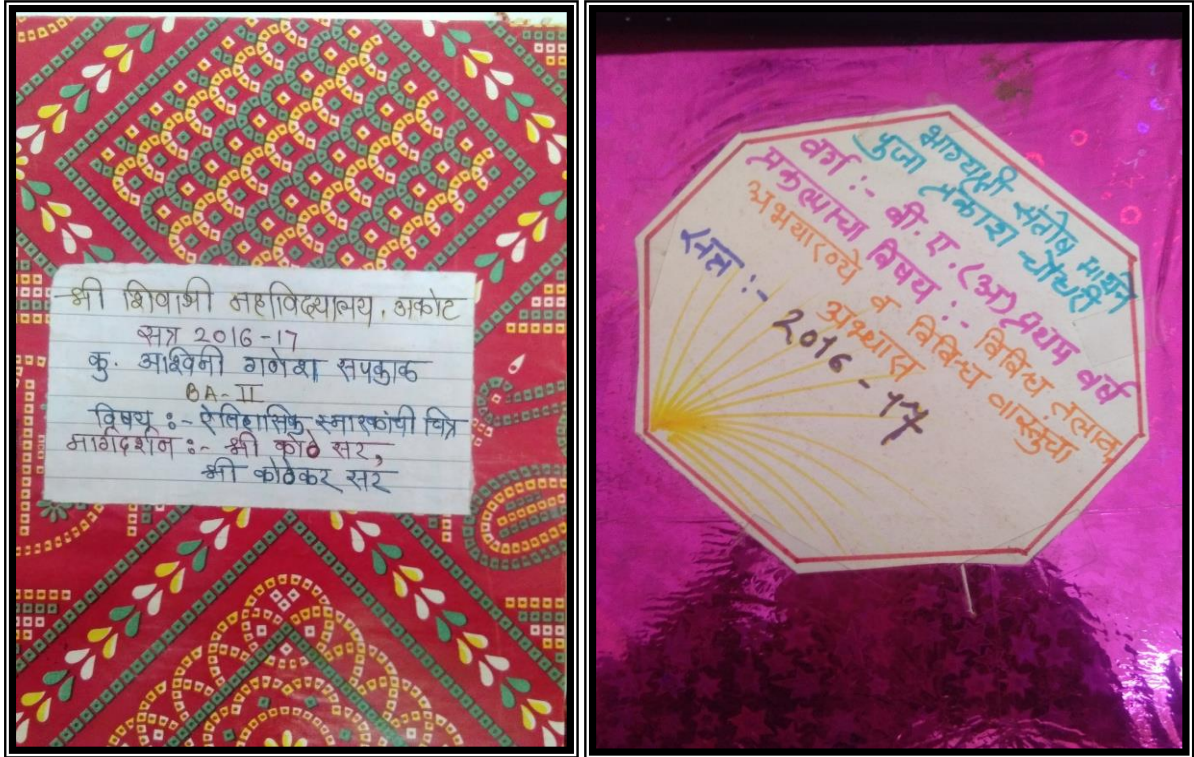 श्री शिवाजी महाविद्यालय, अकोट
सत्र 2016-17
कु. अश्विनी गणेश सपकाळ
BA-II
विषय :- ऐतिहासिक स्मारकांची चित्र
मार्गदर्शन :- श्री कोठे सर,
श्री कोठेकर सर
भाग्यश्री संतोष
पुजा प्रकाश चौधरी
वर्ग :- बी. ए. (अ) प्रथम वर्ष
प्रकल्पाचा विषय :- विविध तलाव,
अभयारण्ये व विविध वास्तुंचा
अभ्यास
सत्र :- 2016-17